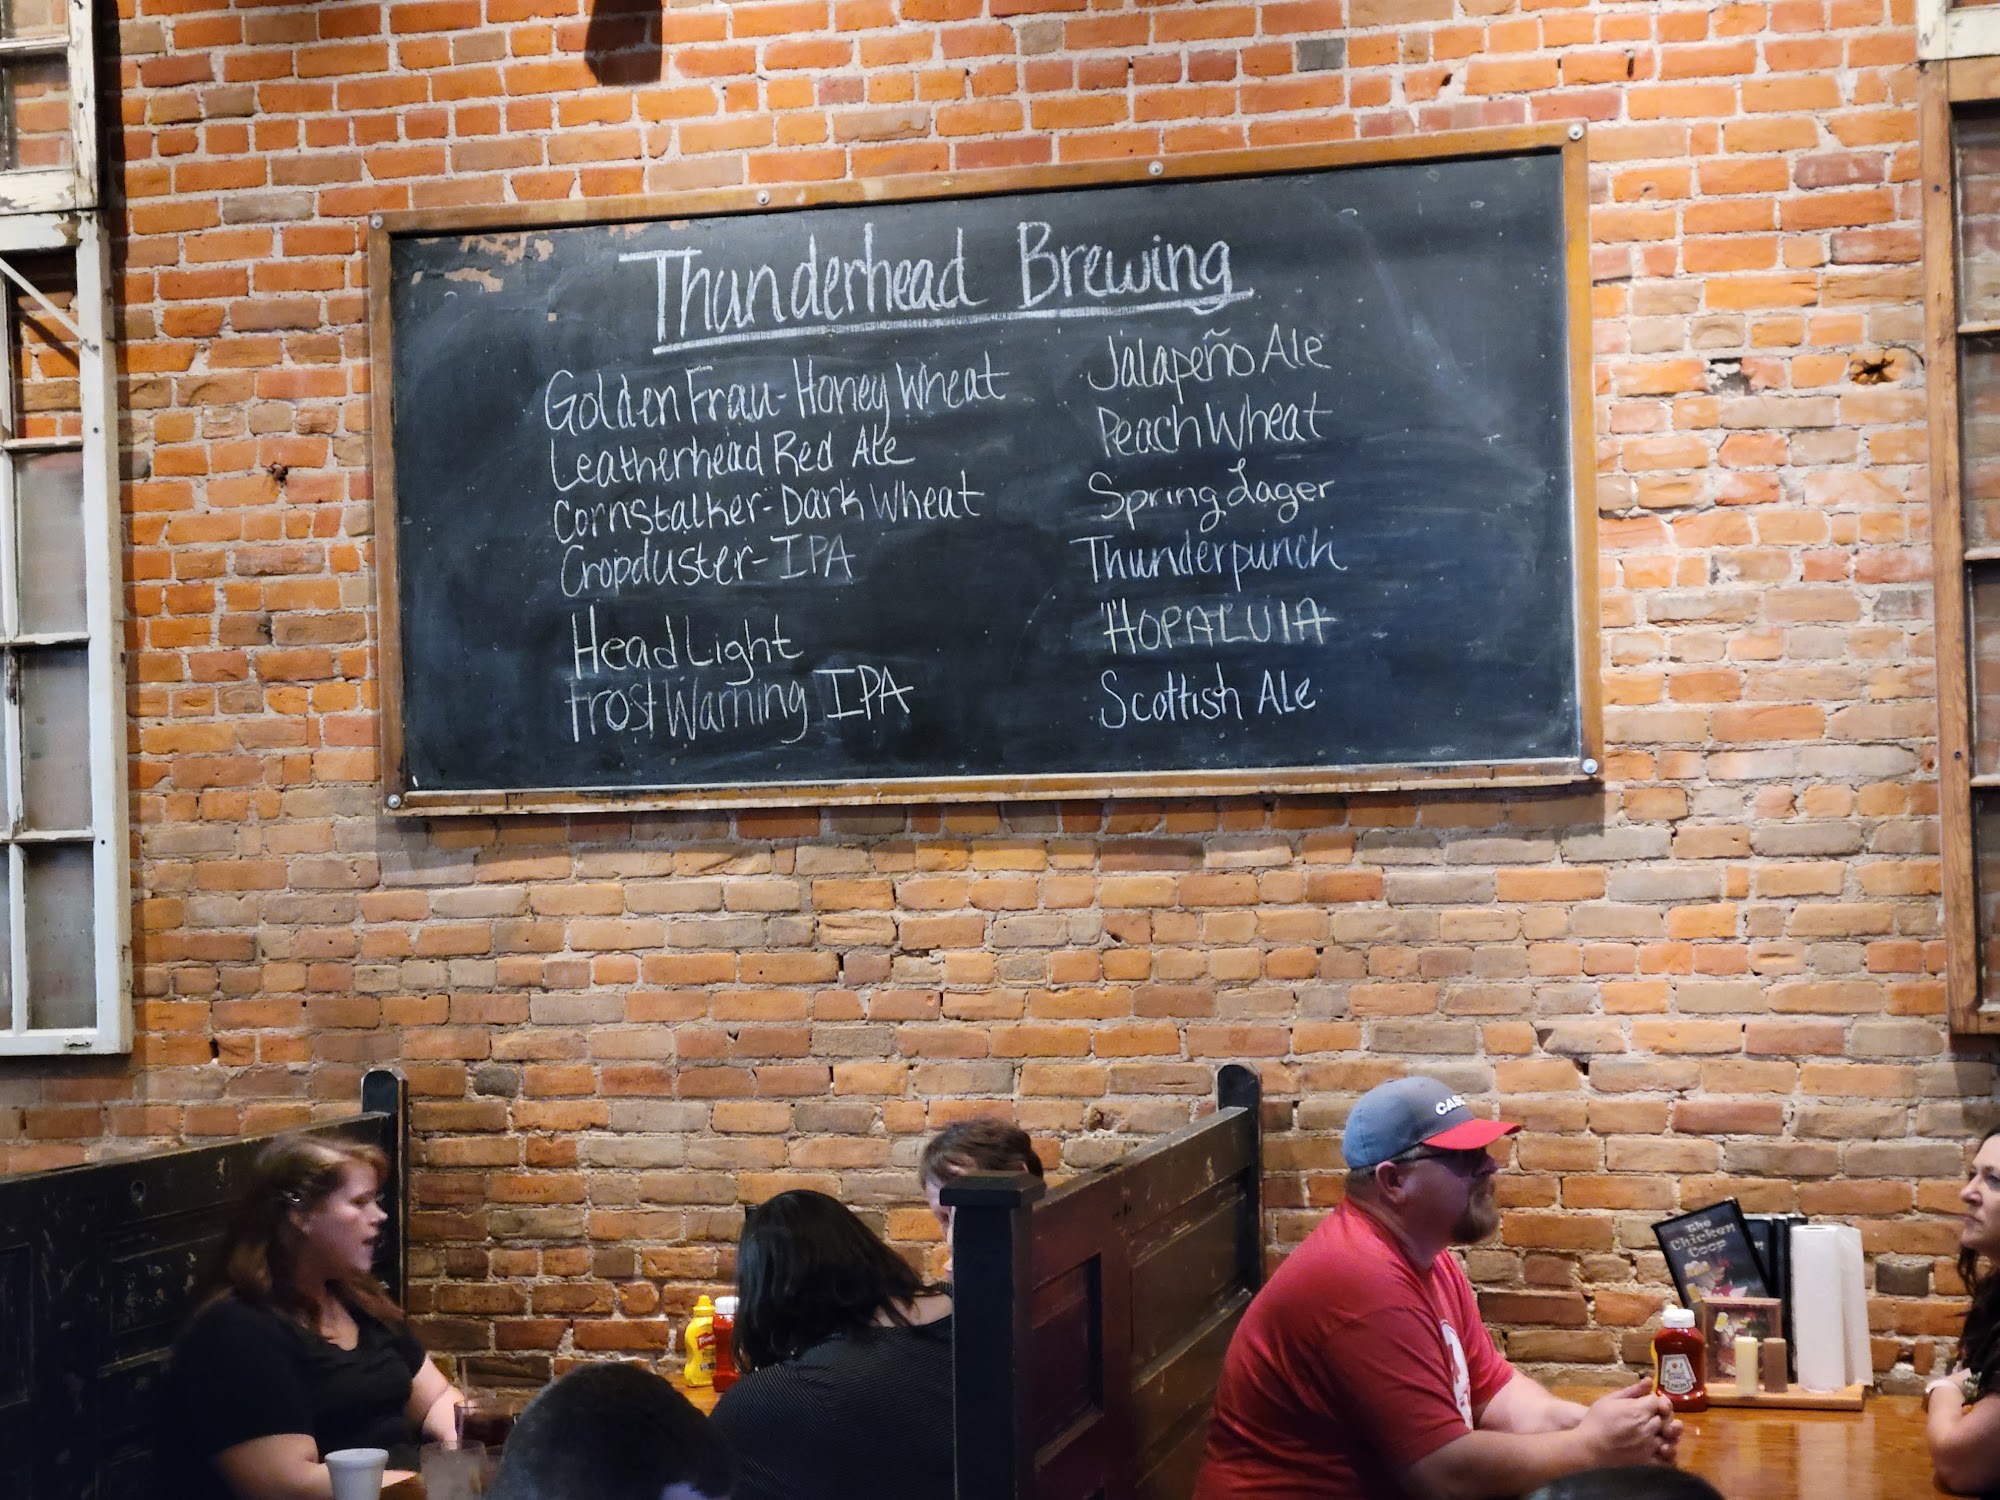 Thunderhead Brewing
Golden Frau-Honey Wheat
Leatherhead Red Ale
Cornstalker-Dark Wheat
Cropduster-IPA
HeadLight
Frost Warning IPA
Jalapeño Ale
Peach Wheat
Spring Lager
Thunderpunch
HOPALUIA
Scottish Ale
The
Chicken
Coop